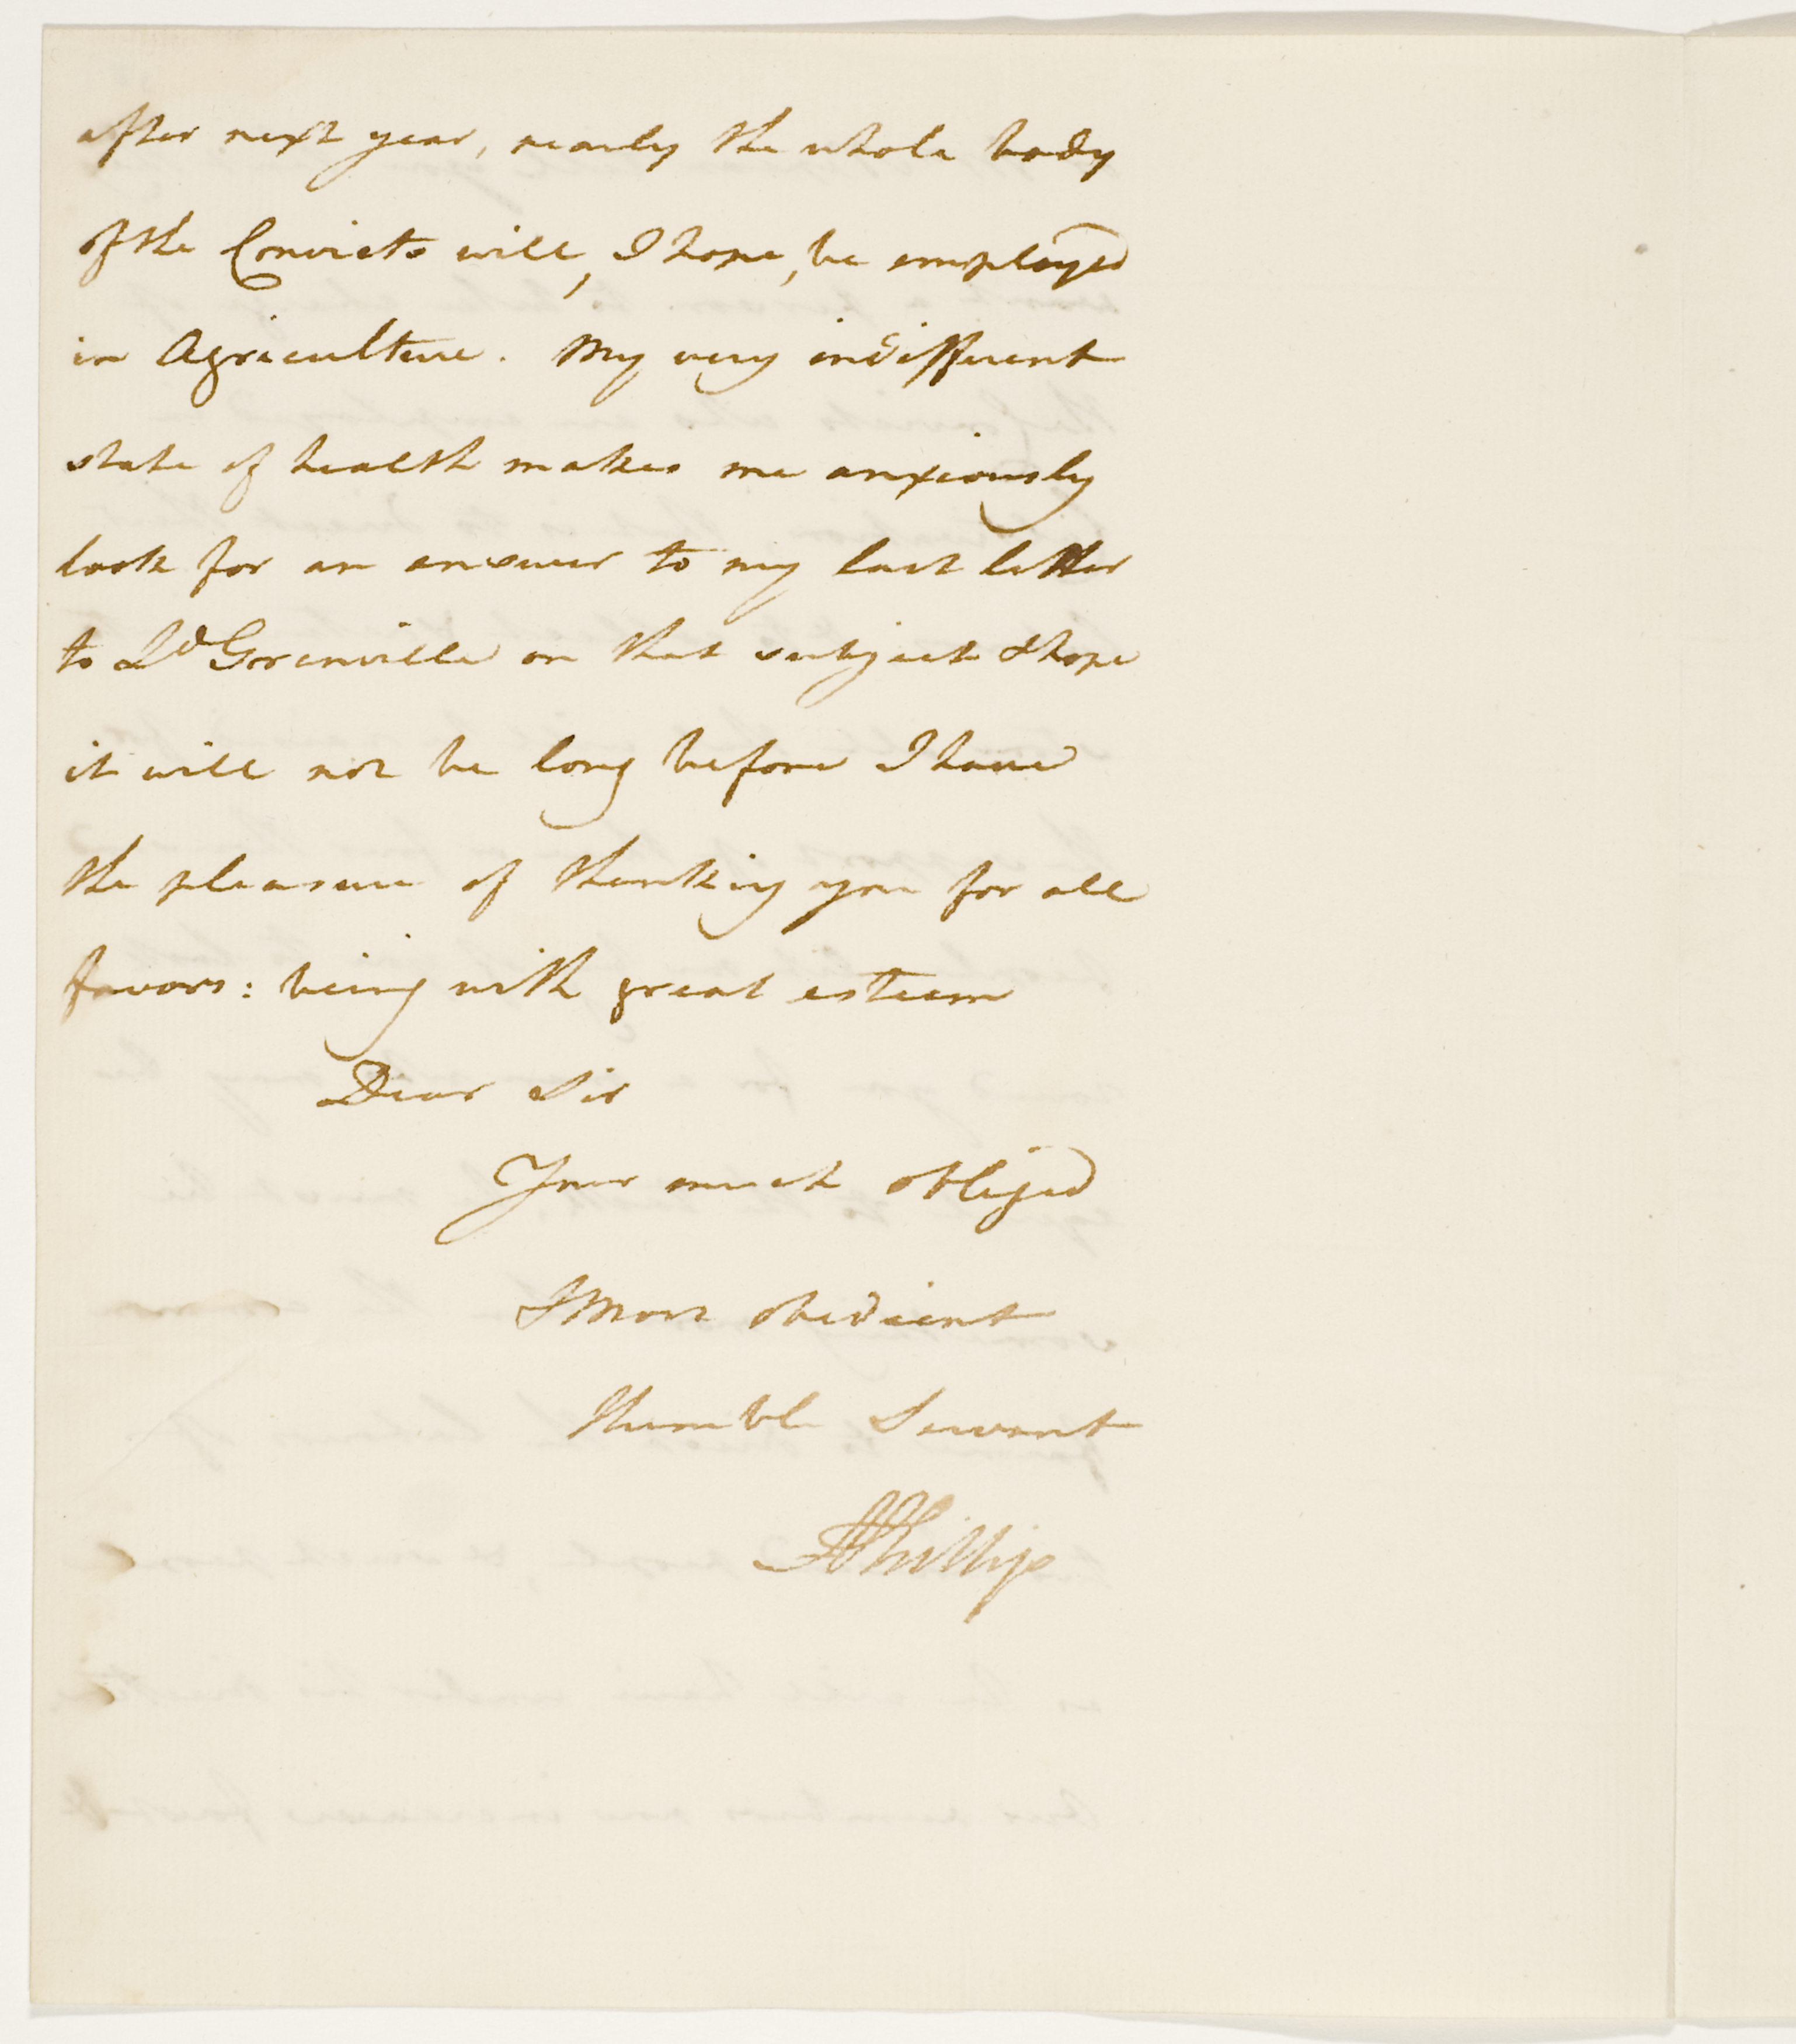 after next year, nearly the whole body
of the Convicts will, I hope, be employed
in Agriculture. My very indifferent
state of health makes me anxiously
look for an answer to my last letter
to Ld Grenville on that subject & hope
it will not be long before I have
the pleasure of thanking you for all
favors: being with great esteem
Dear Sir
Your much obliged
& Most obedient
Humble Servant
A Phillip